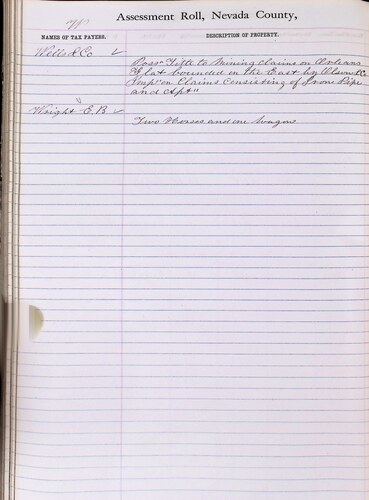 W
Assessment Roll, Nevada County,
NAMES OF TAX PAYERS.
DESCRIPTION OF PROPERTY.
Wells & Co ✓
Poss" Title to Mining claims on Orleans
Flat bounded on the East by
Imp" on Claims Consisting of Iron Pipe
and Apt"
Wright E. B ✓
Two Horses and one Wagon